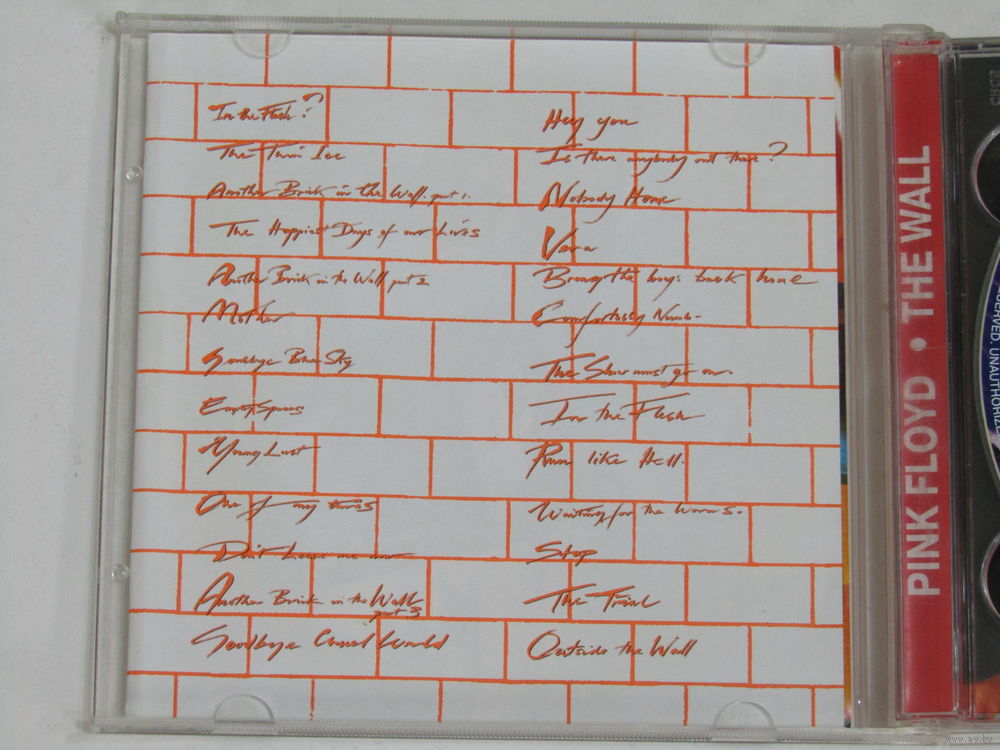 In the Flesh?
The Thin Ice
Another Brick in the Wall. part 1.
The Happiest Days of our Lives
Another Brick in the Wall part 2
Mother
Goodbye Blue Sky
Empty Spaces
Young Lust
One of my turns
Don't Leave me now
Another Brick in the Wall
part 3
Goodbye Cruel World
Hey you
Is there anybody out there?
Nobody Home
Vera
Bring the boys back home
Comfortably Numb.
The Show must go on.
In the Flesh
Run like Hell.
Waiting for the Worms.
Stop
The Trial
Outside the Wall
PINK FLOYD • THE WALL
RESERVED. UNAUTHORIZE
www.ay.by